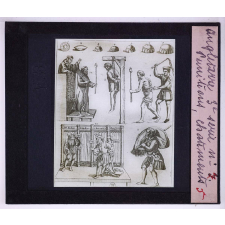 Angleterre 3e série n° 5.
Punitions, chatiments